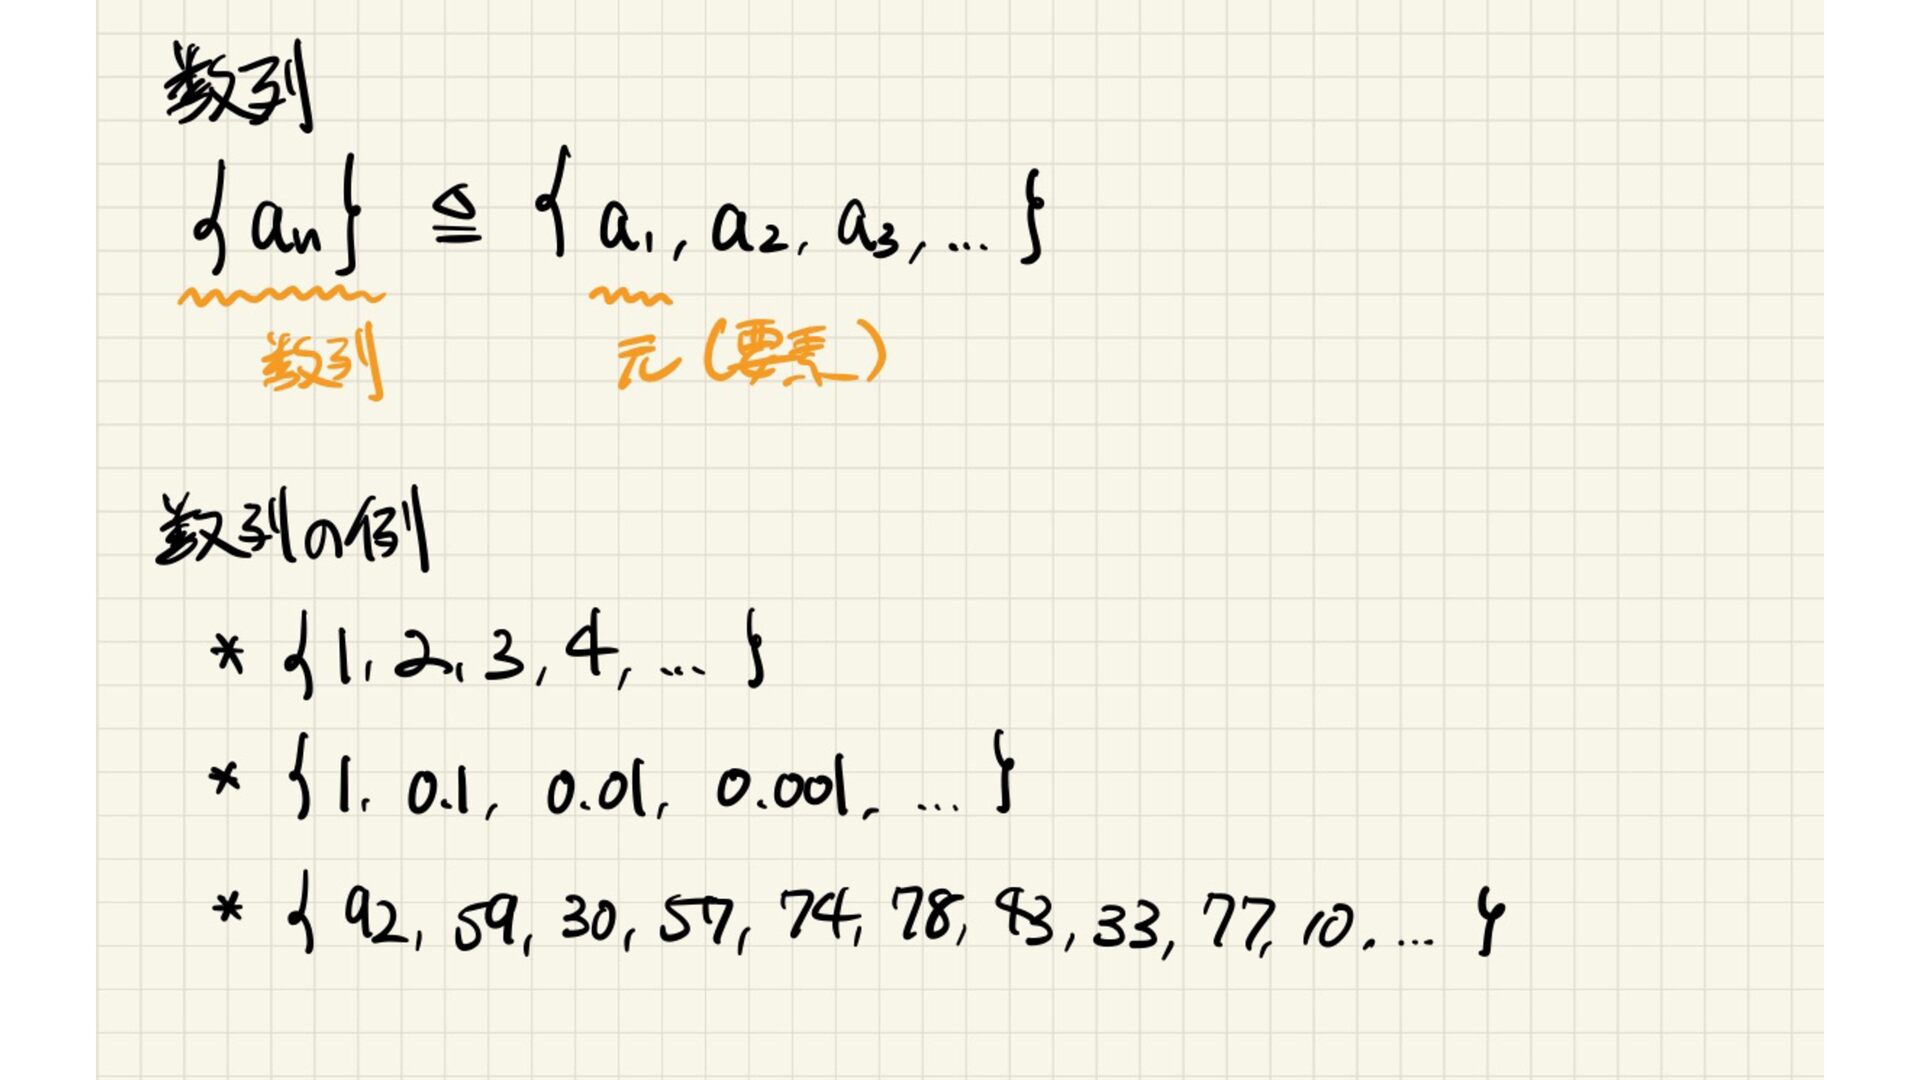 数列
{an} ≜ {a1, a2, a3, ...}
数列 元(要素)
数列の例
* {1, 2, 3, 4, ... }
* {1, 0.1, 0.01, 0.001, ... }
* {92, 59, 30, 57, 74, 78, 93, 33, 77, 10, ... }